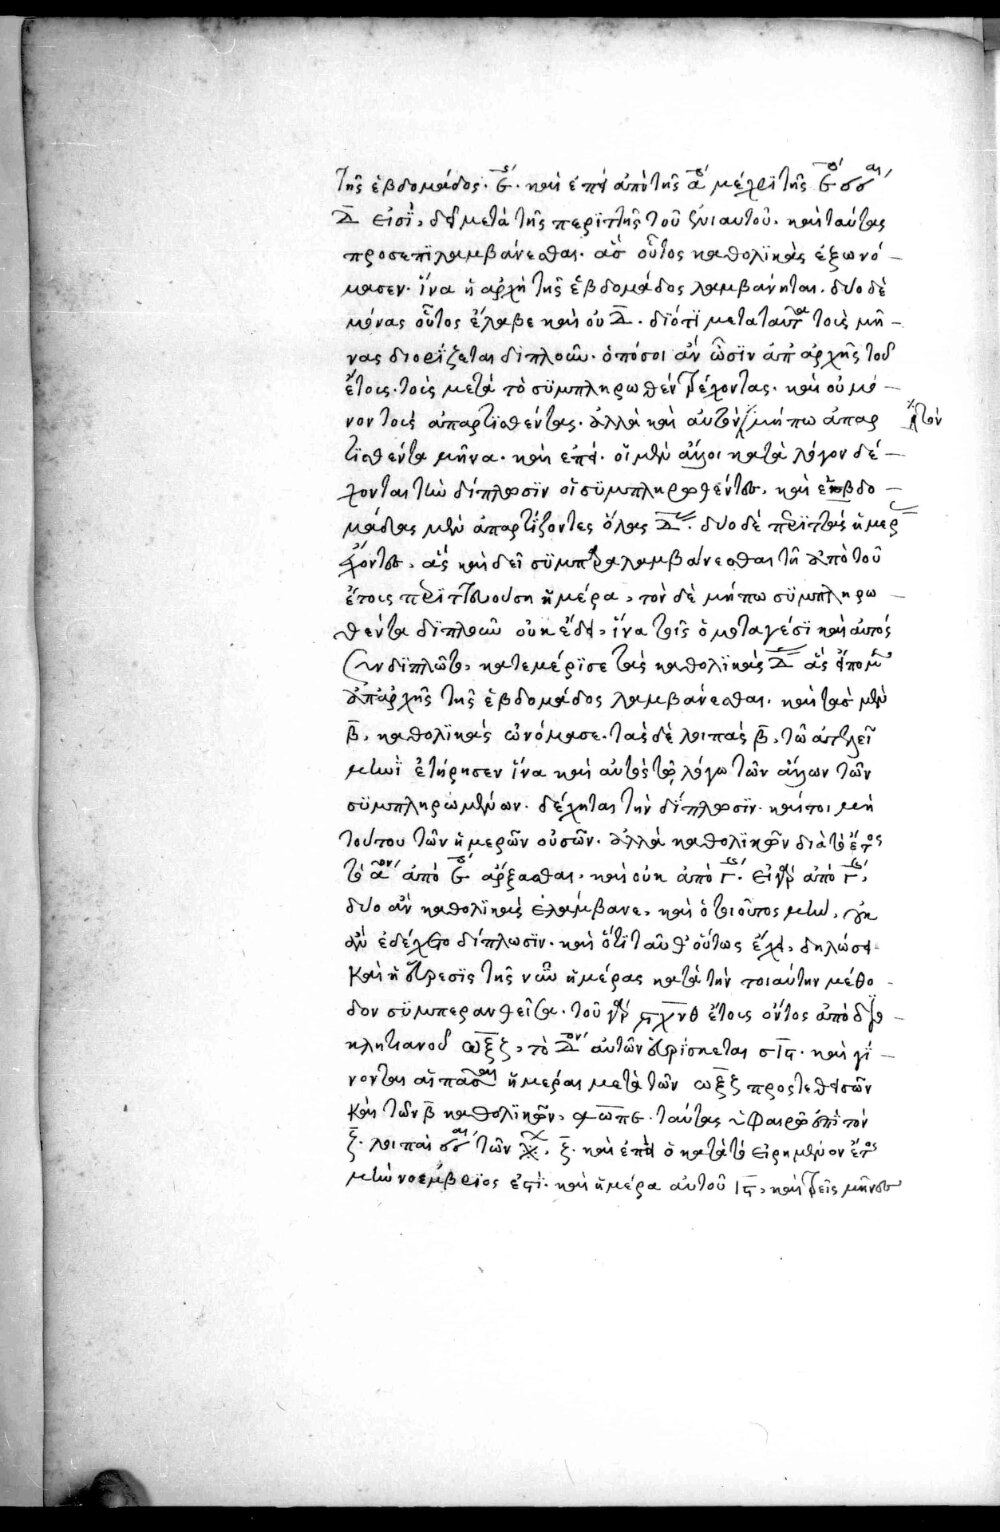 τῆς ἑβδομάδος. ϛ. καὶ ἐπεὶ ἀπὸ τῆς α μέχρι τῆς ϛ
δ εἰσὶ, μετὰ τῆς περιττῆς τοῦ ἐνιαυτοῦ. καὶ ταύτας
προσεπϊλαμβάνεσθαι. ἃς οὗτος καθολϊκὰς ἐξωνό
μασεν. ἵνα ἡ ἀρχὴ τῆς ἑβδομάδος λαμβάνηται. δυο δὲ
μόνας οὗτος ἔλαβε καὶ οὐ δ. διότϊ μετὰ ταῦτα τοῖς μῆ
νας διορίζεται διπλοῦν. ὁπόσοι ἂν ὦσϊν ἀπ' ἀρχῆς τοῦ
ἔτους. τοὺς μετὰ τὸ σϋμπληρωθὲν τρέχοντας. καὶ οὐ μό
νον τοὺς ἀπαρτϊσθέντας. ἀλλὰ καὶ αὐτὸν μήπω ἀπαρ τὸν
τϊσθέντα μῆνα. καὶ ἐπεὶ. οἱ μὲν ἄλλοι κατὰ λόγον δέ
χονται τὴν δίπλωσϊν οἱ σϋμπληρωθέντες. καὶ ἑβδο
μάδας μὲν ἀπαρτίζοντες ὅλας δ. δυο δὲ πρϊττὰς ἡμέρ
ἔχοντες. ἃς καὶ δεῖ σϋμπαραλαμβάνεσθαι τῇ ἀπὸ τοῦ
ἔτους πρϊττευούσῃ ἡμέρᾳ, τὸν δὲ μήπω σϋμπληρω
θέντα διπλοῦν οὐκ ἔδει, ἵνα τοῖς ὁμοταγέσϊ καὶ αὐτὸς
συνδϊπλῶται, κατεμέρισε τὰς καθολϊκὰς δ ἃς εἴπομεν
ἀπ' ἀρχῆς τῆς ἑβδομάδος λαμβάνεσθαι. καὶ τὰς μὲν
β, καθολϊκὰς ὠνόμασε. τὰς δὲ λοιπὰς β, τῷ ἀτελεῖ
μηνϊ ἐτήρησεν ἵνα καὶ αὐτὸς τῷ λόγω τῶν ἄλλων τῶν
σϋμπληρωμένων. δέχηται τὴν δίπλωσϊν. καίτοι μὴ
τούτου τῶν ἡμερῶν οὐσῶν. ἀλλὰ καθολϊκῶν διὰ τὸ ἔτος
τὸ αον ἀπὸ ϛ ἄρξασθαι, καὶ οὐκ ἀπὸ γ. εἰ γὰρ ἀπὸ γ,
δυο ἂν καθολϊκὰς ἐλάμβανε, καὶ ὁ τοιοῦτος μὴν, οὐκ
ἂν ἐδέχετο δίπλωσϊν. καὶ ὅτϊ ταῦθ' οὕτως ἔχει, δηλώσει
Καὶ ἡ εὕρεσϊς τῆς νῦν ἡμέρας κατὰ τὴν τοιαύτην μέθο
δον σϋμπερανθεῖσα. τοῦ γὰρ ͵ϛχνθ ἔτους ὄντος ἀπὸ διο
κλητιανοῦ ωξζ, τὸ δον αὐτῶν εὑρίσκεται σιϛ. καὶ γί
νονται αἱ πᾶσαι ἡμέραι μετὰ τῶν ωξζ προστεθεισῶν
Καὶ τῶν β καθολϊκῶν, ͵αωπϛ. ταύτας ὑφαιρῶ ἐπὶ τὸν
ξ. λοιπαὶ τῶν ξ. καὶ ἐπεὶ ὁ κατὰ τὸ εἰρημένον ἔτος
μὴν νοέμβρϊος ἐστϊ. καὶ ἡμέρα αὐτοῦ ιϛ, καὶ τρεῖς μῆνες